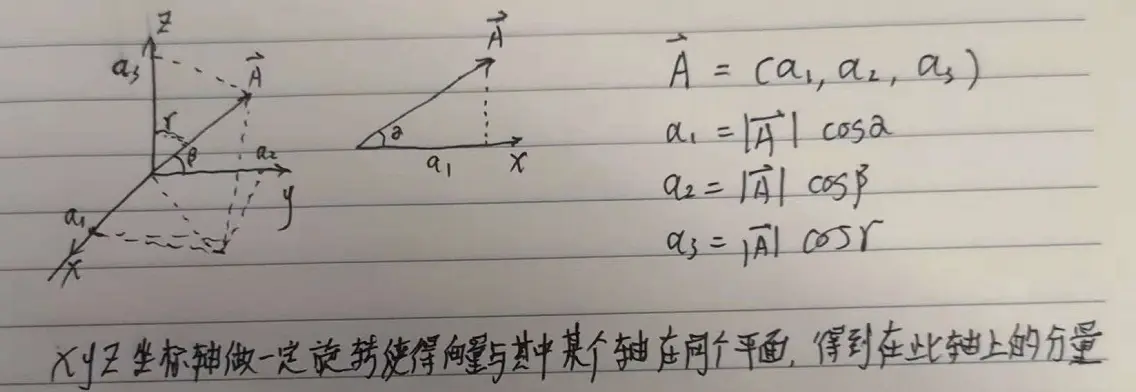 z
a₃
A⃗
γ
β
a₂
y
a₁
x
A⃗
α
a₁
x
A⃗ = (a₁, a₂, a₃)
a₁ = |A⃗| cosα
a₂ = |A⃗| cosβ
a₃ = |A⃗| cosγ
xyz坐标轴做一定旋转使得向量与其中某个轴在同个平面, 得到在此轴上的分量